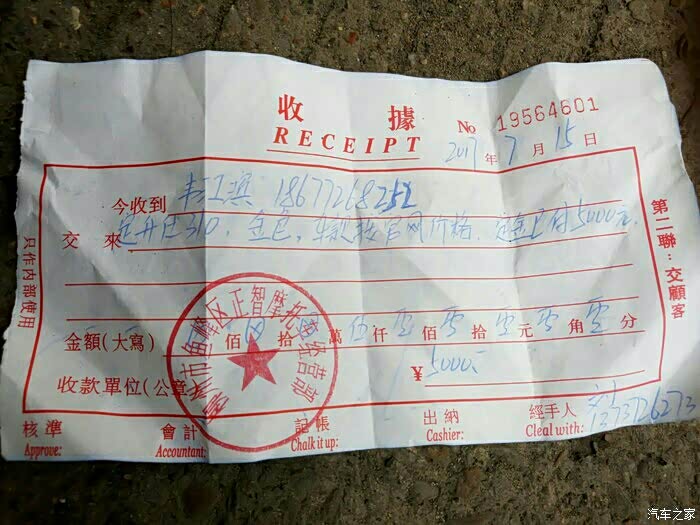 收據
RECEIPT
No 19564601
2017年7月15日
今收到 18677268252
交來 定井田310，金色，车款按官网价格，定金已付5000元.
金額(大寫) 佰 拾 萬伍仟零佰零拾零元零角零分
¥5000
收款單位(公章)
市鱼峰区正智摩托车经营部
核準 會計 記帳 出納 經手人
Approve: Accountant: Chalk it up: Cashier: Cleal with:
13737726273
只作内部使用
第二聯：交顧客
汽车之家